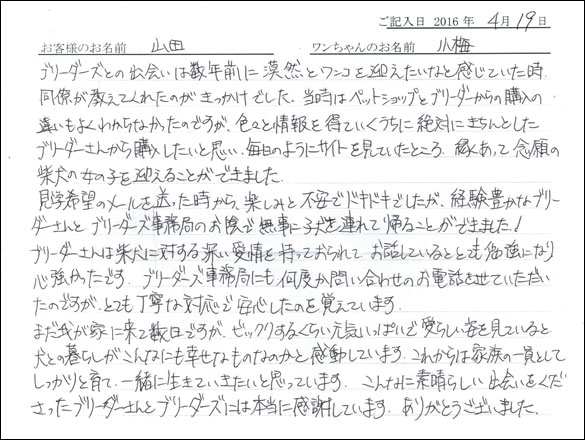 ご記入日 2016年 4月19日
お客様のお名前 山田 ワンちゃんのお名前 小梅
ブリーダーズとの出会いは数年前に漠然とワンコを迎えたいなと感じていた時
同僚が教えてくれたのがきっかけでした。当時はペットショップとブリーダーからの購入の
違いもよくわからなかったのですが、色々と情報を得ていくうちに絶対にきちんとした
ブリーダーさんから購入したいと思い、毎日のようにサイトを見ていたところ、縁あって念願の
柴犬の女の子を迎えることができました。
見学希望のメールを送った時から、楽しみと不安でドキドキでしたが、経験豊かなブリー
ダーさんとブリーダーズ事務局のお陰で無事に子犬を連れて帰ることができました！
ブリーダーさんは柴犬に対する深い愛情を持っておられて、お話しているととても勉強になり
心強かったです。ブリーダーズ事務局にも何度か問い合わせのお電話させていただい
たのですが、とても丁寧な対応で安心したのを覚えています。
まだ我が家に来て数日ですが、ビックリするくらい元気いっぱいで愛らしい姿を見ていると
犬との暮らしがこんなにも幸せなものなのかと感動しています。これからは家族の一員として
しっかりと育て、一緒に生きていきたいと思っています。こんなに素晴らしい出会いをくだ
さったブリーダーさんとブリーダーズには本当に感謝しています。ありがとうございました。